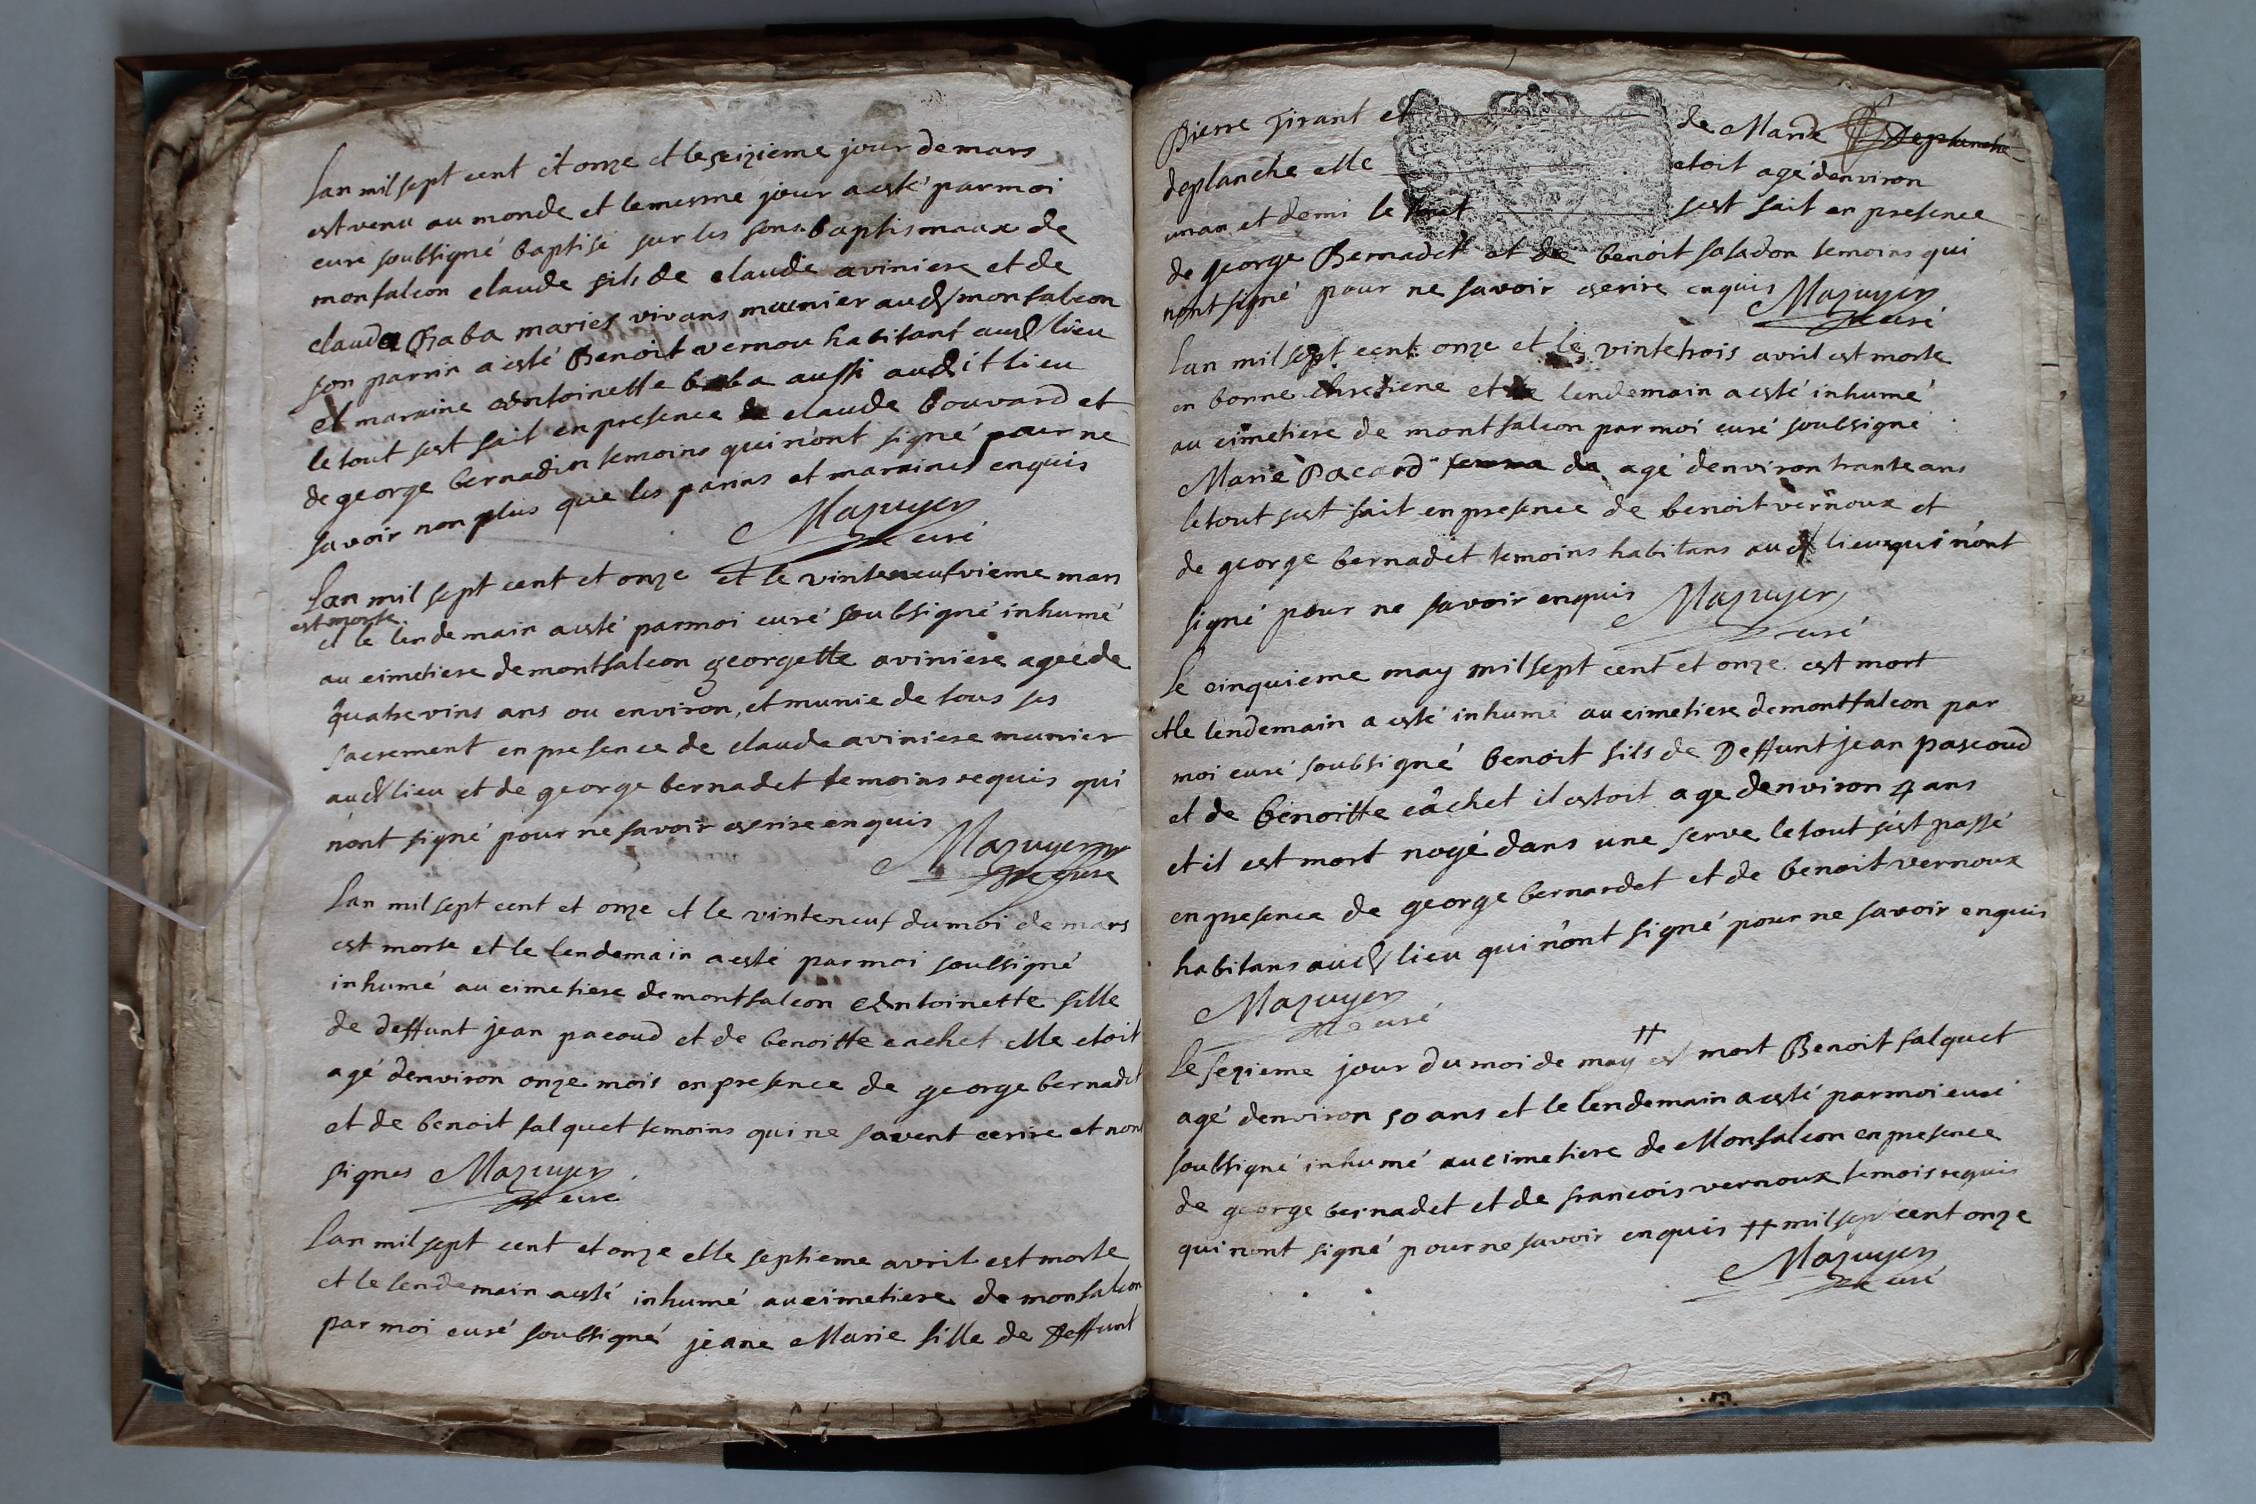 Lan mil sept cent et onze et le seizieme jour de mars
est venu au monde et le mesme jour a esté par moi
curé soubsigné baptisé sur les fons baptismaux de
monfalcon claude fils de claude aviniere et de
clauda Baba mariés vivans munier aud monfalcon
son parrin a esté Benoit vernou habitant aud lieu
et maraine Antoinette baba aussi audit lieu
le tout sest fait en presence de claude bouvard et
de george bernadin temoins qui n'ont signé pour ne
savoir non plus que les parins et maraines enquis
Mazuyer
curé
Lan mil sept cent et onze et le vinteneufvieme mars
est morte
et le lendemain a esté par moi curé soubsigné inhumé
au cimetiere de montfalcon georgette aviniere agée de
quatrevins ans ou environ, et munie de tous ses
sacrement en presence de claude aviniere munier
aud lieu et de george bernadet temoins requis qui
n'ont signé pour ne savoir escrire enquis
Mazuyer
curé
Lan mil sept cent et onze et le vinteneuf du moi de mars
est morte et le lendemain a esté par moi soubsigné
inhumé au cimetiere de montfalcon Antoinette fille
de deffunt jean pacoud et de benoitte cachet elle etoit
agé d'environ onze mois en presence de george bernadet
et de benoit falquet temoins qui ne savent ecrire et nont
signes Mazuyer
curé
Lan mil sept cent et onze elle septieme avril est morte
et le lendemain a esté inhumé au cimetiere de monfalcon
par moi curé soubsigné jeane Marie fille de Deffunt
Pierre Tirant et de Marie Deplanche
deplanche elle etoit agé denviron
unan et demi le tout sest fait en presence
de george Bernadet et de benoit faladon temoins qui
nont signé pour ne savoir escrire enquis Mazuyer
curé
Lan mil sept cent onze et le vintetrois avril est morte
en bonne chretiene et le lendemain a esté inhumé
au cimetiere de montfalcon par moi curé soubsigné
Marie Pacard femme de agé denviron trante ans
le tout sest fait en presence de benoit vernoux et
de george bernadet temoins habitans aud lieu qui n'ont
signé pour ne savoir enquis Mazuyer
curé
Le cinquieme may mil sept cent et onze est mort
et le lendemain a esté inhumé au cimetiere de montfalcon par
moi curé soubsigné benoit fils de Deffunt jean pascoud
et de benoitte câchet il estoit age denviron 4 ans
et il est mort noyé dans une serve le tout s'est passé
en presence de george bernardet et de benoit vernoux
habitans aud lieu qui n'ont signé pour ne savoir enquis
Mazuyer
curé
Le sezieme jour du moi de may # est mort Benoit falquet
agé denviron 50 ans et le lendemain a esté par moi curé
soubsigné inhumé au cimetiere de Monfalcon en presence
de george bernadet et de francois vernoux temois requis
qui nont signé pour ne savoir enquis # mil sept cent onze
Mazuyer
curé